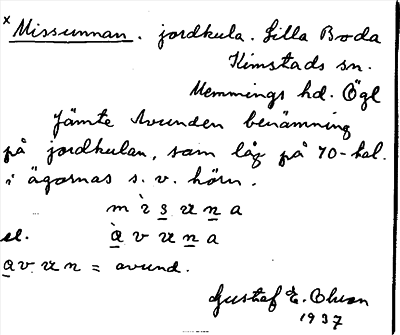 x Missunnan. jordkula. Lilla Boda
Kimstads sn.
Memmings hd. Ögl
Jämte Avunden benämning
på jordkulan, som låg på 70-tal.
i ägornas s. v. hörn.
m ì s ʉ n a
el. à v ʉ n a
a v ʉ n = avund.
Gustaf E. Olson
1937